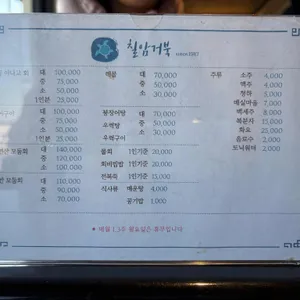 칠암거북 since1987
아나고 회 대 100,000
중 75,000
소 50,000
1인분 25,000
대 100,000
중 75,000
50,000
1인분 25,000
모둠회 대 140,000
중 120,000
소 100,000
모둠회 대 110,000
중 90,000
소 70,000
매운 대 70,000
중 50,000
소 30,000
붕장어탕 대 70,000
우럭탕 중 50,000
우럭구이 소 30,000
물회 1인기준 20,000
회비빔밥 1인기준 20,000
전복죽 1인기준 15,000
식사류 매운탕 4,000
공기밥 1,000
주류 소주 4,000
맥주 4,000
청하 5,000
매실마을 7,000
백세주 8,000
복분자 15,000
화요 25,000
음료수 2,000
토닉워터 2,000